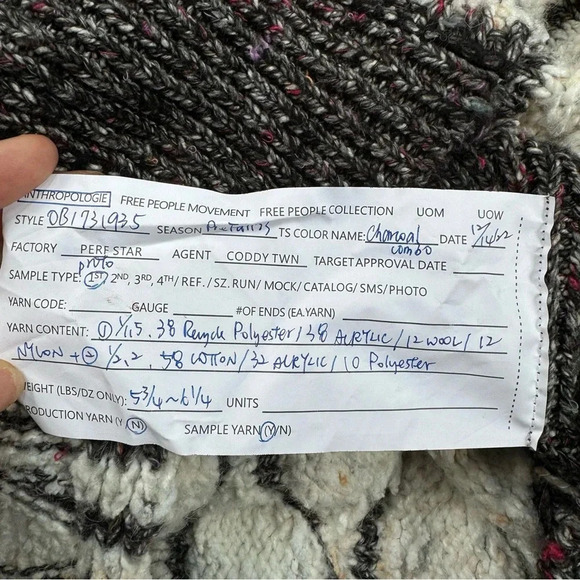 ANTHROPOLOGIE FREE PEOPLE MOVEMENT FREE PEOPLE COLLECTION UOM UOW
STYLE OB1731935 SEASON TS COLOR NAME: Charcoal combo DATE 12/14/22
FACTORY PERF STAR AGENT CODDY TWN TARGET APPROVAL DATE
proto
SAMPLE TYPE: 1ST 2ND, 3RD, 4TH / REF. / SZ. RUN / MOCK / CATALOG / SMS / PHOTO
YARN CODE: GAUGE #OF ENDS (EA.YARN)
YARN CONTENT: ① 1/1.5, 38 Recycle Polyester / 38 ACRYLIC / 12 WOOL / 12
NYLON + ② 1/2.2, 58 COTTON / 32 ACRYLIC / 10 Polyester
EIGHT (LBS/DZ ONLY): 5 3/4 ~ 6 1/4 UNITS
RODUCTION YARN (Y N) SAMPLE YARN (Y/N)